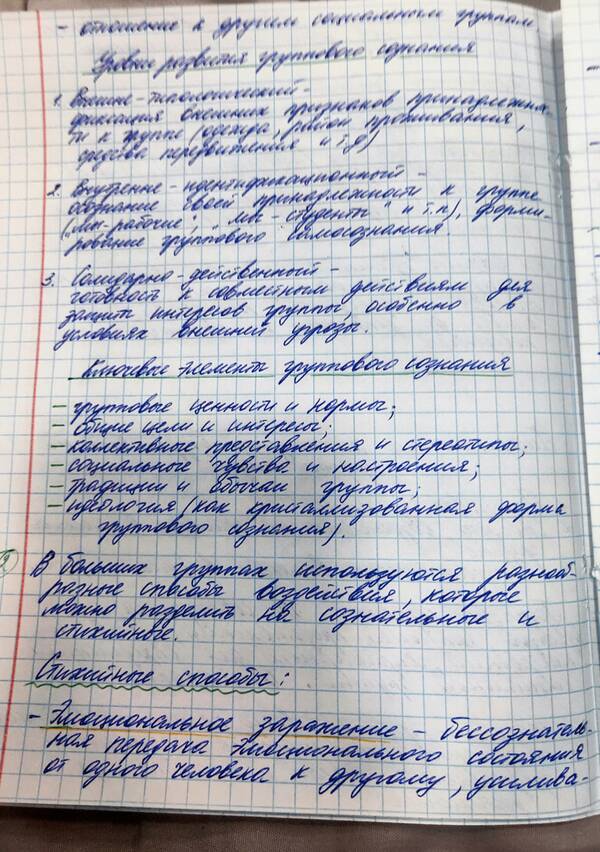 - отношение к другим социальным группам.
Уровни развития группового сознания
1. Внешне-типологический -
фиксация внешних признаков принадлежнос-
ти к группе (одежда, район проживания,
средства передвижения и т.д)
2. Внутренне-идентификационный -
осознание своей принадлежности к группе
("мы-рабочие", "мы-студенты" и т.п), форми-
рование группового самосознания
3. Солидарно-действенный -
готовность к совместным действиям для
защиты интересов группы, особенно в
условиях внешней угрозы.
Ключевые элементы группового сознания
- групповые ценности и нормы;
- общие цели и интересы;
- коллективные представления и стереотипы;
- социальные чувства и настроения;
- традиции и обычаи группы;
- идеология (как кристаллизованная форма
группового сознания).
В больших группах используются разнооб-
разные способы воздействия, которые
можно разделить на сознательные и
стихийные.
Стихийные способы:
- Эмоциональное заражение - бессознатель-
ная передача эмоционального состояния
от одного человека к другому, усилива-